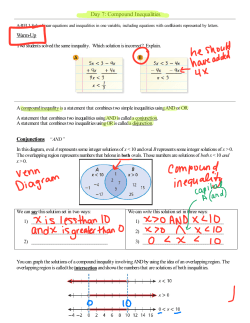 Day 7: Compound Inequalities
Warm-Up
Two students solved the same inequality. Which solution is incorrect? Explain.
he should
have added
4x
A
B
5x < 5 - 4x
5x < 5 - 4x
+4x + 4x
-4x - 4x
9x < 5
x < 5
A compound inequality is a statement that combines two simple inequalities using AND or OR.
A statement that combines two inequalities using AND is called a conjunction.
A statement that combines two inequalities using OR is called a disjunction.
Conjunctions "AND"
In this diagram, oval A represents some integer solutions of x < 10 and oval B represents some integer solutions of x > 0.
The overlapping region represents numbers that belong in both ovals. Those numbers are solutions of both x < 10 and
x > 0.
Venn
Diagram
Compound
inequality
capital
A (and)
We can say this solution set in two ways:
We can write this solution set in three ways:
1) x is less than 10
and x is greater than 0
2)
1) x>0 AND x<10
2) x>0 ∧ x<10
3) 0 < x < 10
You can graph the solutions of a compound inequality involving AND by using the idea of an overlapping region. The
overlapping region is called the intersection and shows the numbers that are solutions of both inequalities.
x < 10
x > 0
0 10
0 < x < 10
-4 -2 0 2 4 6 8 10 12 14 16